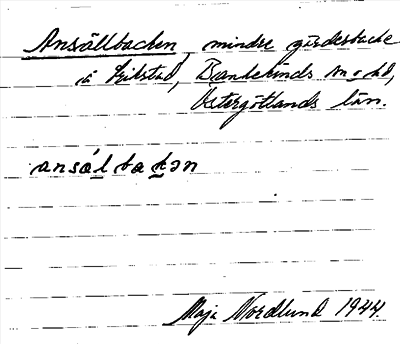 Ansällbacken, mindre gärdesbacke
å Eikstad, Bankekinds sn o hd,
Östergötlands län.
ansálbakən
Maja Nordlund 1944.